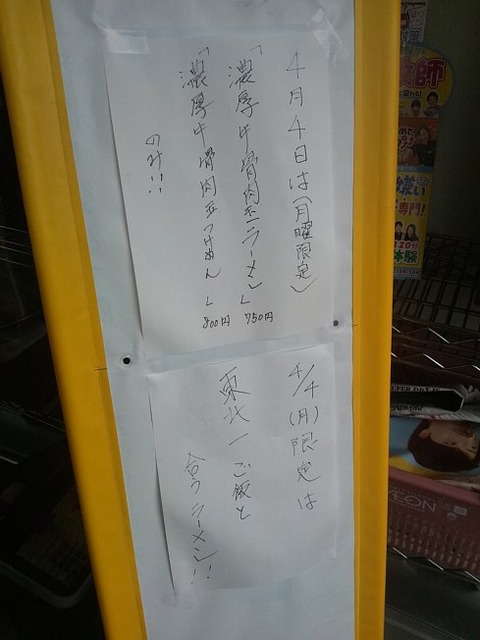 4月4日は(月曜限定)
「濃厚牛骨肉玉ラーメン」750円
「濃厚牛骨肉玉つけめん」800円
のみ!!
4/4(月)限定は
東北一ご飯と
合うラーメン!!
師
専門!
20分
体験